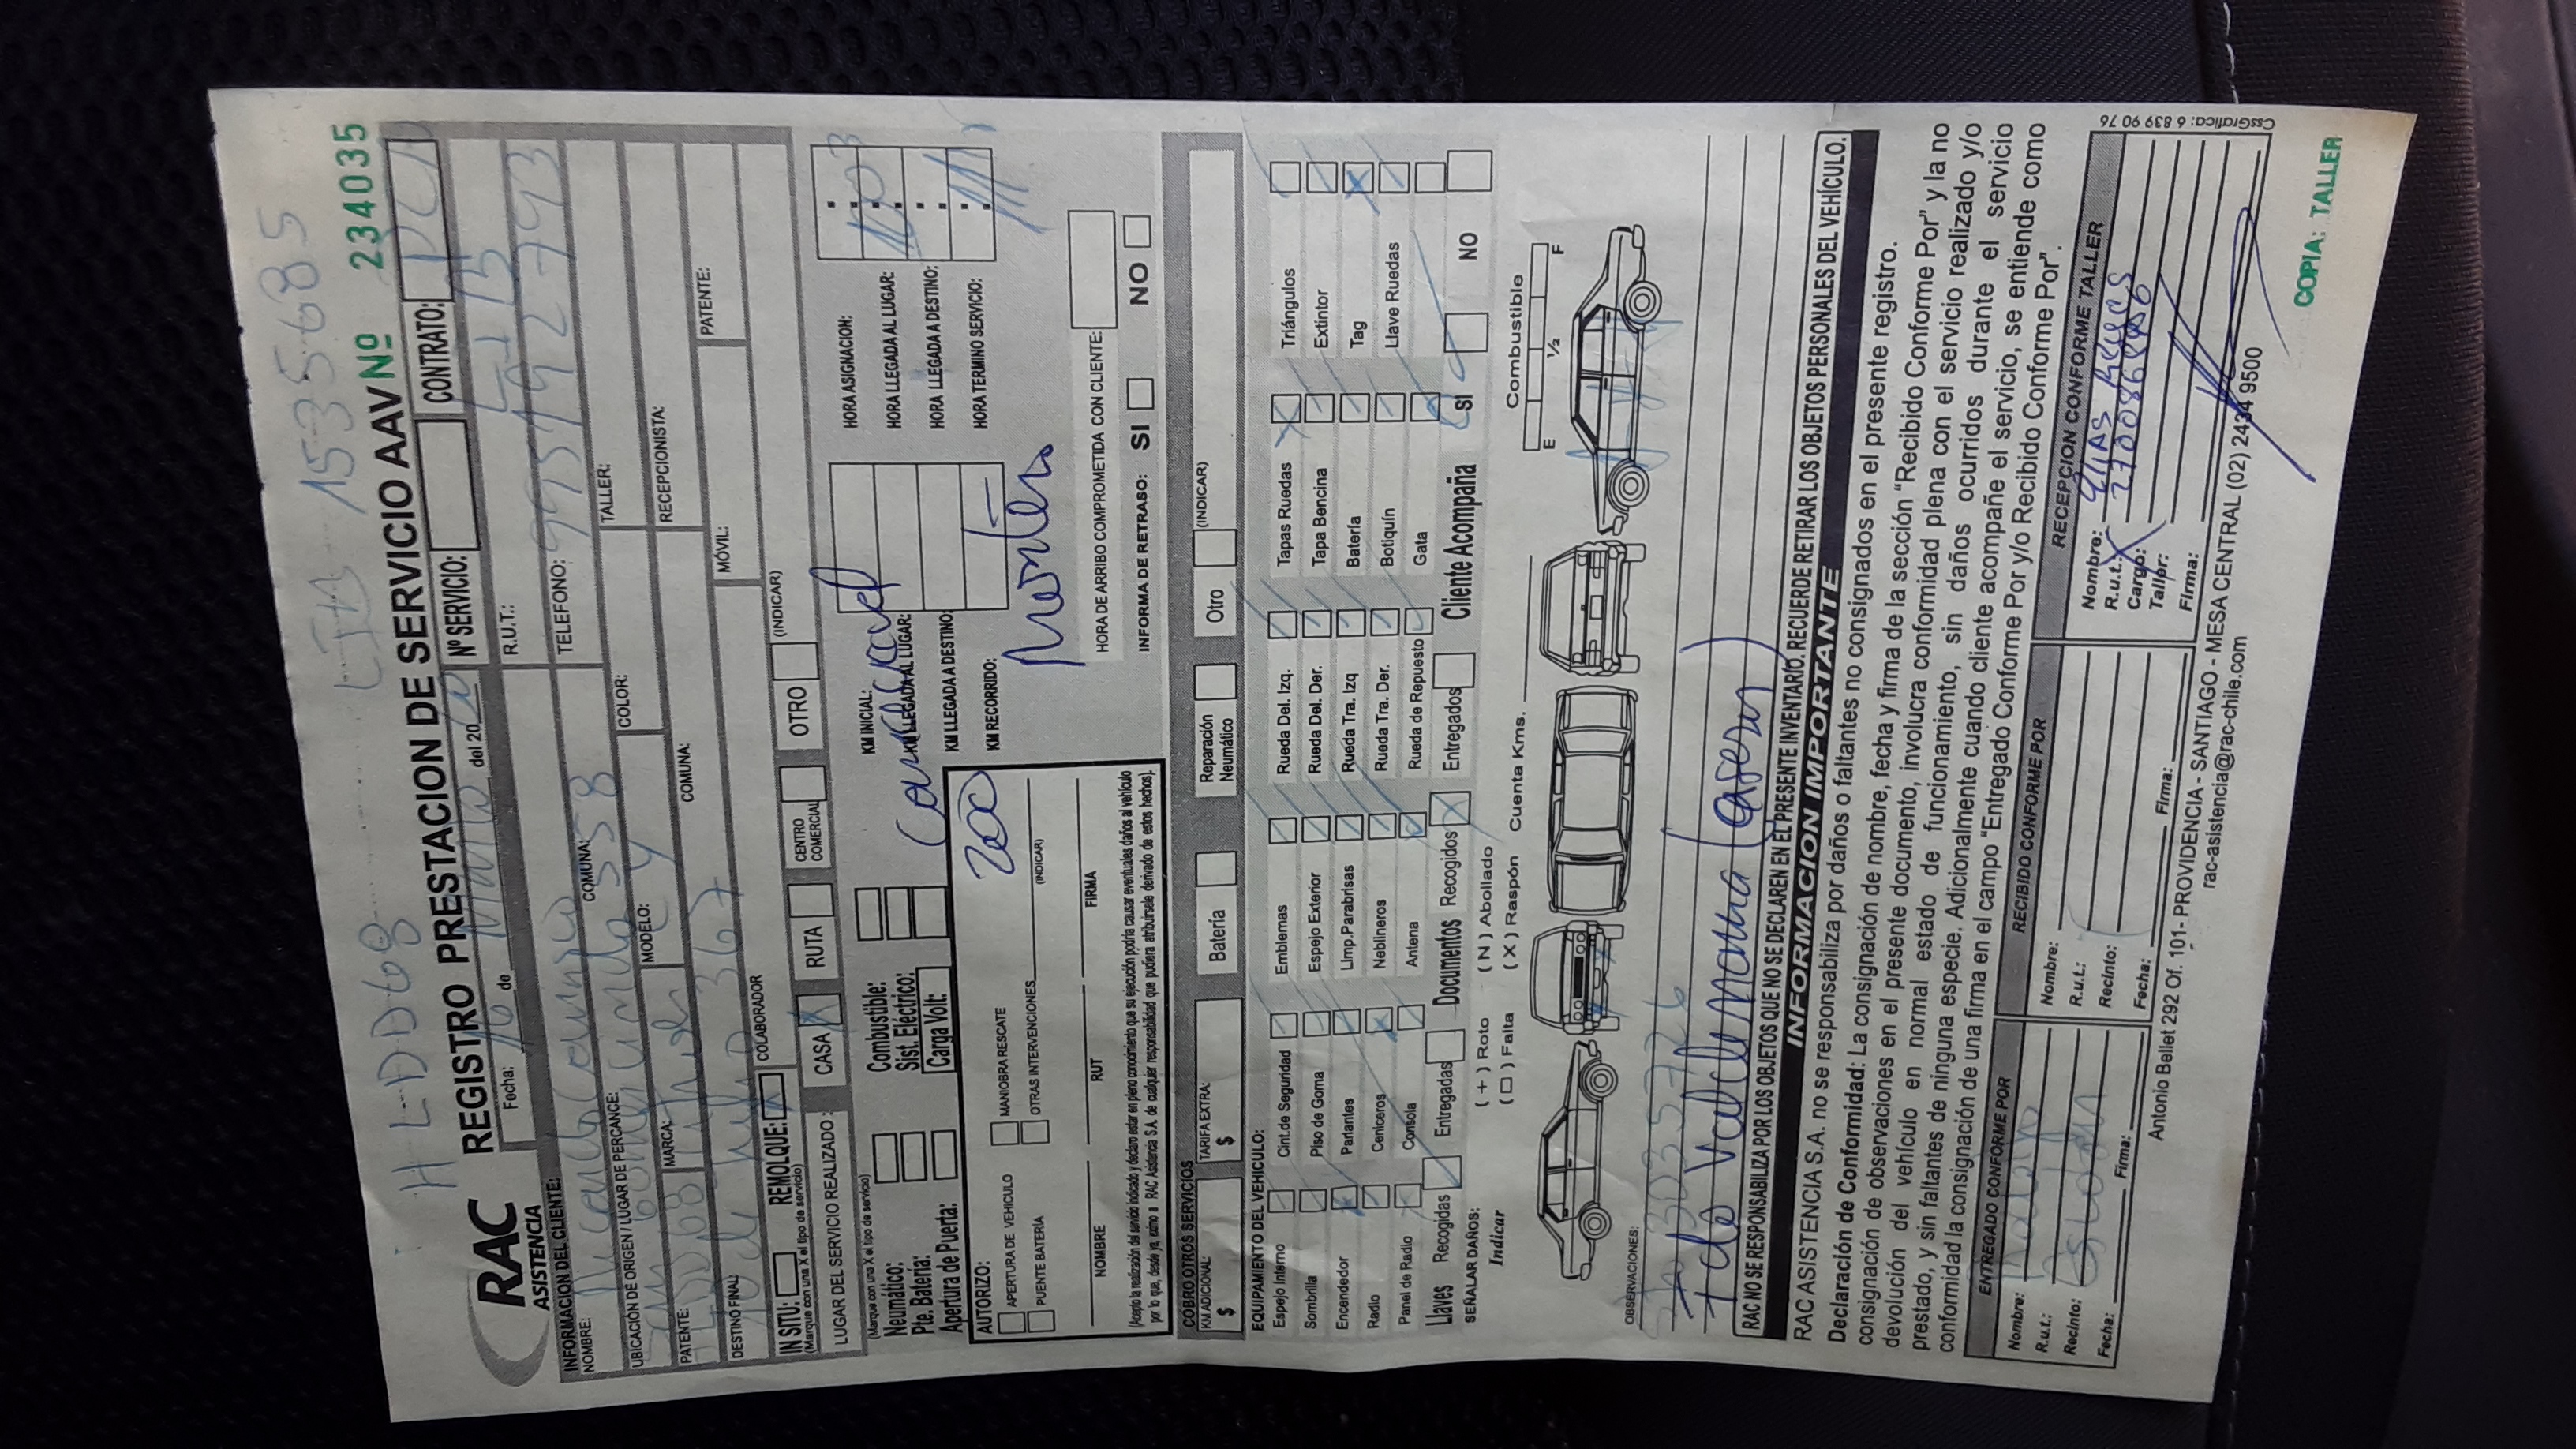 HLDD68 LTA 1535685
RAC ASISTENCIA
REGISTRO PRESTACION DE SERVICIO AAV Nº 234035
Fecha: 16 de del 20
Nº SERVICIO:
CONTRATO:
INFORMACION DEL CLIENTE:
R.U.T.:
NOMBRE:
COMUNA:
TELEFONO: 995192793
UBICACIÓN DE ORIGEN / LUGAR DE PERCANCE:
TALLER:
PATENTE:
MARCA:
MODELO:
COLOR:
RECEPCIONISTA:
DESTINO FINAL:
COMUNA:
MÓVIL:
PATENTE:
IN SITU: REMOLQUE: X COLABORADOR
(Marque con una X el tipo de servicio)
LUGAR DEL SERVICIO REALIZADO : CASA X RUTA CENTRO COMERCIAL OTRO (INDICAR)
(Marque con una X el tipo de servicio)
Neumático: Combustible:
Pte. Batería: Sist. Eléctrico:
Apertura de Puerta: Carga Volt:
KM INICIAL:
KM LLEGADA AL LUGAR:
KM LLEGADA A DESTINO:
KM RECORRIDO:
HORA ASIGNACION:
HORA LLEGADA AL LUGAR:
HORA LLEGADA A DESTINO:
HORA TERMINO SERVICIO:
AUTORIZO:
APERTURA DE VEHICULO MANIOBRA RESCATE
PUENTE BATERÍA OTRAS INTERVENCIONES (INDICAR)
NOMBRE RUT FIRMA
(Acepto la realización del servicio indicado y declaro estar en pleno conocimiento que su ejecución podría causar eventuales daños al vehículo
por lo que, desde ya, eximo a RAC Asistencia S.A. de cualquier responsabilidad que pudiera atribuírsele derivado de estos hechos).
HORA DE ARRIBO COMPROMETIDA CON CLIENTE:
INFORMA DE RETRASO: SI NO
COBRO OTROS SERVICIOS
KM ADICIONAL: $ TARIFA EXTRA: $ Batería Reparación Neumático Otro (INDICAR)
EQUIPAMIENTO DEL VEHICULO:
Espejo Interno Cint.de Seguridad Emblemas Rueda Del. Izq. Tapas Ruedas Triángulos
Sombrilla Piso de Goma Espejo Exterior Rueda Del. Der. Tapa Bencina Extintor
Encendedor Parlantes Limp.Parabrisas Rueda Tra. Izq Batería Tag
Radio Ceniceros Neblineros Rueda Tra. Der. Botiquín Llave Ruedas
Panel de Radio Consola Antena Rueda de Repuesto Gata
Llaves Recogidas Entregadas Documentos Recogidos Entregados Cliente Acompaña SI NO
SEÑALAR DAÑOS: ( + ) Roto ( N ) Abollado
Indicar ( □ ) Falta ( X ) Raspón Cuenta Kms. Combustible
E ½ F
OBSERVACIONES:
RAC NO SE RESPONSABILIZA POR LOS OBJETOS QUE NO SE DECLAREN EN EL PRESENTE INVENTARÍO. RECUERDE RETIRAR LOS OBJETOS PERSONALES DEL VEHÍCULO.
INFORMACION IMPORTANTE
RAC ASISTENCIA S.A. no se responsabiliza por daños o faltantes no consignados en el presente registro.
Declaración de Conformidad: La consignación de nombre, fecha y firma de la sección "Recibido Conforme Por" y la no
consignación de observaciones en el presente documento, involucra conformidad plena con el servicio realizado y/o
devolución del vehículo en normal estado de funcionamiento, sin daños ocurridos durante el servicio
prestado, y sin faltantes de ninguna especie. Adicionalmente cuando cliente acompañe el servicio, se entiende como
conformidad la consignación de una firma en el campo "Entregado Conforme Por y/o Recibido Conforme Por".
ENTREGADO CONFORME POR RECIBIDO CONFORME POR RECEPCIÓN CONFORME TALLER
Nombre: Nombre: Nombre:
R.u.t.: R.u.t.: R.u.t.:
Recinto: Recinto: Cargo:
Fecha: Firma: Fecha: Firma: Taller:
Firma:
Antonio Bellet 292 Of. 101- PROVIDENCIA - SANTIAGO - MESA CENTRAL (02) 2434 9500
rac-asistencia@rac-chile.com
CssGrafica: 6 839 90 76
COPIA: TALLER